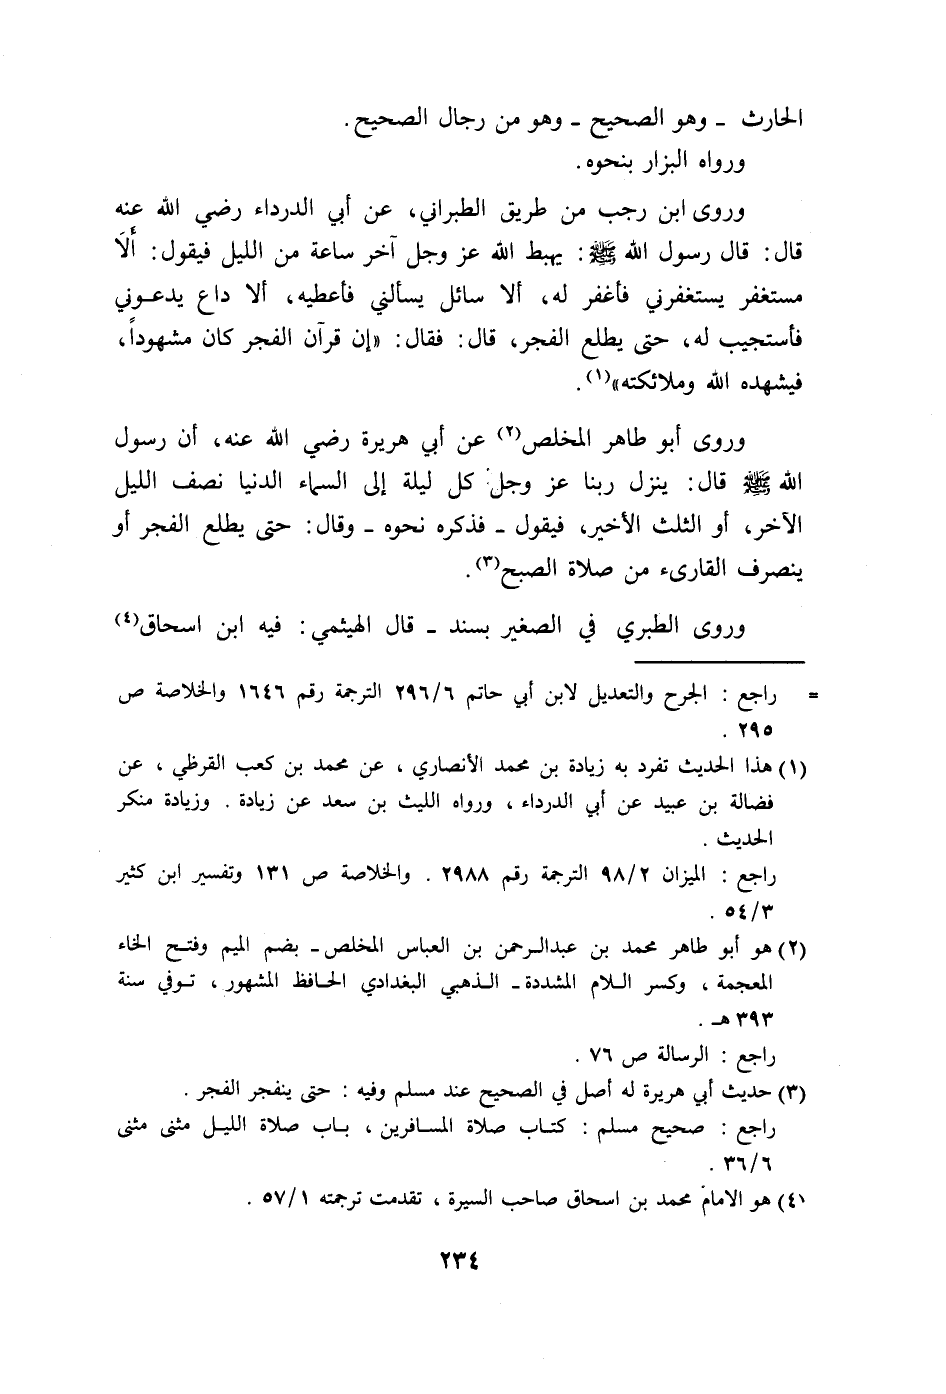 الحارث ـ وهو الصحيح ـ وهو من رجال الصحيح.
ورواه البزار بنحوه.
وروى ابن رجب من طريق الطبراني، عن أبي الدرداء رضي الله عنه
قال: قال رسول الله ﷺ: يهبط الله عز وجل آخر ساعة من الليل فيقول: أَلَا
مستغفر يستغفرني فأغفر له، ألا سائل يسألني فأعطيه، ألا داع يدعوني
فأستجيب له، حتى يطلع الفجر، قال: فقال: «إن قرآن الفجر كان مشهوداً،
فيشهده الله وملائكته»(١).
وروى أبو طاهر المخلص(٢) عن أبي هريرة رضي الله عنه، أن رسول
الله ﷺ قال: ينزل ربنا عز وجل كل ليلة إلى السماء الدنيا نصف الليل
الآخر، أو الثلث الأخير، فيقول ـ فذكره نحوه ـ وقال: حتى يطلع الفجر أو
ينصرف القارىء من صلاة الصبح(٣).
وروى الطبري في الصغير بسند ـ قال الهيثمي: فيه ابن اسحاق(٤)
= راجع : الجرح والتعديل لابن أبي حاتم ٢٩٦/٦ الترجمة رقم ١٦٤٦ والخلاصة ص
٢٩٥ .
(١) هذا الحديث تفرد به زيادة بن محمد الأنصاري ، عن محمد بن كعب القرظي ، عن
فضالة بن عبيد عن أبي الدرداء ، ورواه الليث بن سعد عن زيادة . وزيادة منكر
الحديث .
راجع : الميزان ٩٨/٢ الترجمة رقم ٢٩٨٨ . والخلاصة ص ١٣١ وتفسير ابن كثير
٥٤/٣ .
(٢) هو أبو طاهر محمد بن عبدالرحمن بن العباس المخلص ـ بضم الميم وفتح الخاء
المعجمة ، وكسر اللام المشددة ـ الذهبي البغدادي الحافظ المشهور ، توفي سنة
٣٩٣ هـ .
راجع : الرسالة ص ٧٦ .
(٣) حديث أبي هريرة له أصل في الصحيح عند مسلم وفيه : حتى ينفجر الفجر .
راجع : صحيح مسلم : كتاب صلاة المسافرين ، باب صلاة الليل مثنى مثنى
٣٦/٦ .
(٤) هو الامام محمد بن اسحاق صاحب السيرة ، تقدمت ترجمته ٥٧/١ .
٢٣٤